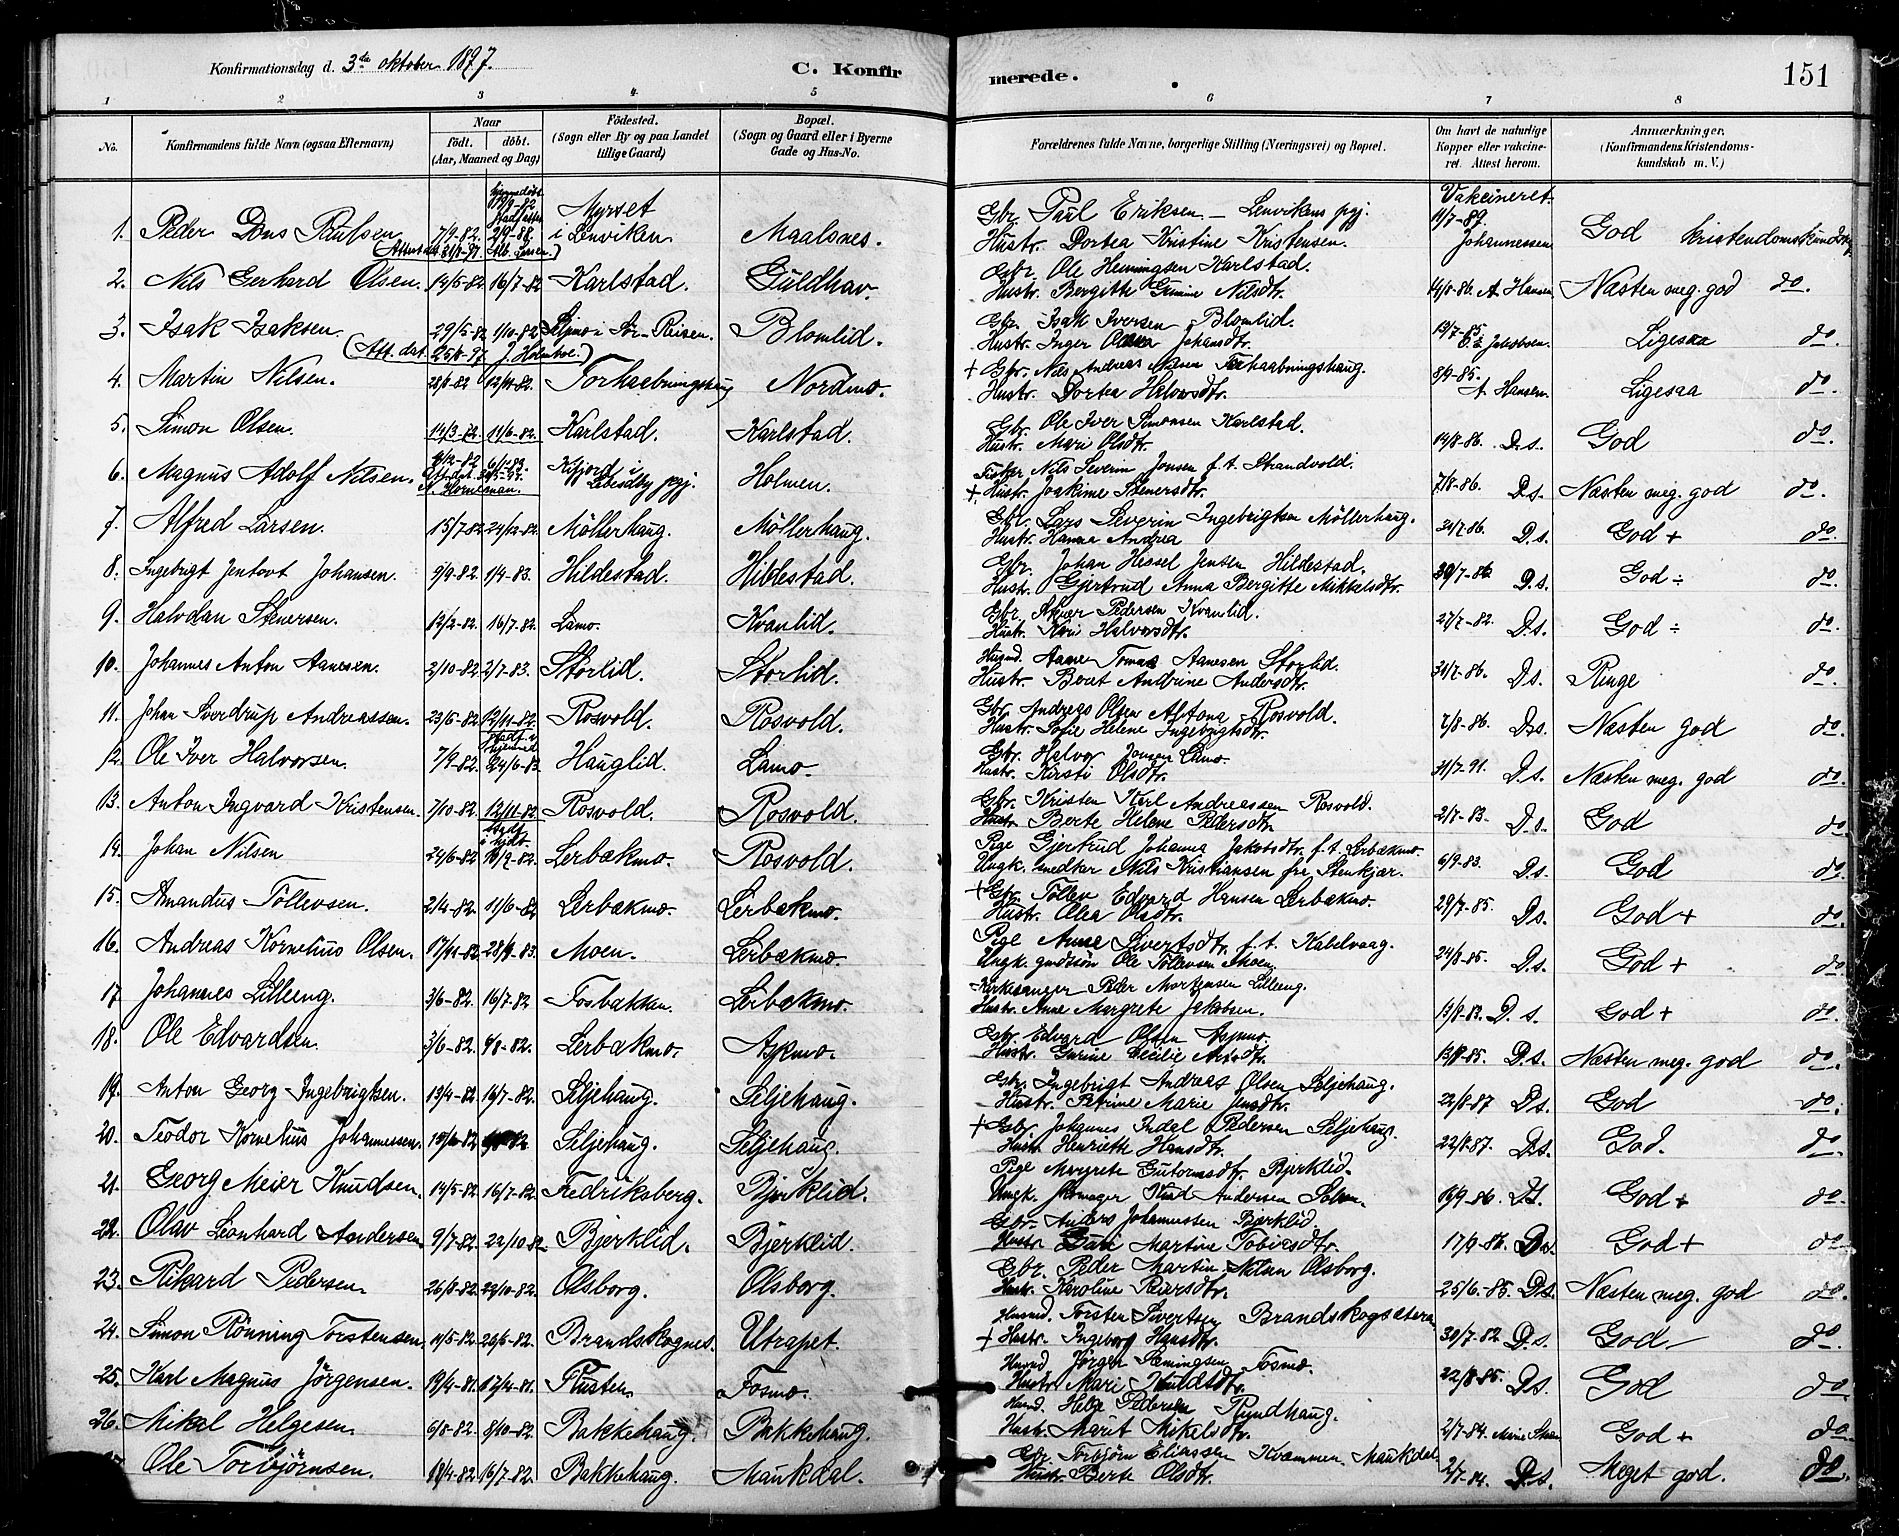 Konfirmationsdag d. 3die oktober 1897.
C. Konfirmerede.
151
1 2 3 4 5 6 7 8
No.
Konfirmandens fulde Navn (ogsaa Efternavn)
Naar
født. døbt.
(Aar, Maaned og Dag)
Fødested.
(Sogn eller By og paa Landet
tillige Gaard)
Bopæl.
(Sogn og Gaard eller i Byerne
Gade og Hus-No.
Forældrenes fulde Navne, borgerlige Stilling (Næringsvei) og Bopæl.
Om havt de naturlige
Kopper eller vakcine-
ret. Attest herom.
Anmærkninger.
(Konfirmandens Kristendoms-
kundskab m. V.)
1. Peder Paulsen 7/9-82. Myrset i Lenviken Maalsnes. Gbr. Paul Eriksen - Lenvikens pgj. Vakcineret 11/7-89. Johannessen God Kristendomskundskab
Hustr. Dortea Kristine Kristensen.
2. Nils Gerhard Olsen. 14/5-82 16/7-82 Karlstad. Guldhav. Gbr. Ole Henningsen Karlstad. 14/8-86. A. Hansen Næsten meg. god do.
Hustr. Bergitte Nilsdtr.
3. Isak Isaksen. 29/5-82 1/10-82 Blomlid. Gbr. Isak Iversen Blomlid. 19/7-85. Jakobsen. Ligesaa do.
Hustr. Inger Johansdtr.
4. Martin Nilsen. 12/11-82. Forhaabningshaug Nordmo. + Gbr. Nils Andreas Forhaabningshaug. 8/9-85. A. Hansen. Ligesaa do.
Hustr. Dortea Halvorsdtr.
5. Simon Olsen. 14/3-82. 11/6-82. Karlstad. Karlstad. Gbr. Ole Iver Simonsen Karlstad. 14/8-86. D.s. God do.
Hustr. Mari Olsdtr.
6. Magnus Adolf Nilsen. Kifjord i Lebesby pgj. Holmen. Fisker Nils Severin Jonsen f.t. Strandvold. 7/8-86. D.s. Næsten meg. god do.
+ Hustr. Joakime Stenersdtr.
7. Alfred Larsen. 15/7-82 24/12-82. Möllerhaug. Möllerhaug. Gbr. Lars Severin Ingebrigtsen Möllerhaug. D.s. God + do.
Hustr. Hanna Andrea
8. Ingebrigt Jentoft Johansen. 9/9-82. 1/4-83. Hildestad. Hildestad. Gbr. Johan Hessel Jensen Hildestad. 30/7-86. D.s. God ÷ do.
Hustr. Gjertrud Anna Bergitte Mikkelsdtr.
9. Halvdan Stenersen. 12/2-82. 16/7-82. Lamo. Kvanlid. Gbr. Stener Pedersen Kvanlid. 27/7-82. D.s. God ÷ do.
Hustr. Kari Halvorsdtr.
10. Johannes Anton Aanesen. 2/10-82. 2/7-83. Storlid. Storlid. Husmd. Aane Tomas Aanesen Storlid. 31/7-86. D.s. Ringe do.
Hustr. Andrine Andersdtr.
11. Johan Sverdrup Andreassen. 23/6-82 12/11-82. Rosvold. Rosvold. Gbr. Andreas Olsen Altona Rosvold. 7/8-86. D.s. Næsten god do.
Hustr. Sofie Helene Ingebrigtsdtr.
12. Ole Iver Halvorsen. 7/9-82. 24/6-83. Hauglid. Lamo. Gbr. Halvor Jonsen Lamo. 31/7-91. D.s. Næsten meg. god do.
Hustr. Kirsti Olsdtr.
13. Anton Ingvard Kristensen. 7/10-82. 12/11-82. Rosvold. Rosvold. Gbr. Kristen Karl Andreassen Rosvold. 2/7-83. D.s. God do.
Hustr. Berte Helene Pedersdtr.
14. Johan Nilsen 24/6-82 Lerbækmo. Rosvold. Pige Gjertrud Johanna Jakobsdtr. f.t. Lerbækmo. 6/9-83. D.s. God do.
Ungk. snedker Nils Kristiansen fra Stenkjær.
15. Amandus Tollevsen. 2/4-82. 11/6-82 Lerbækmo. Lerbækmo. + Gbr. Tollev Edvard Hansen Lerbækmo. 29/7-85. D.s. God + do.
Hustr. Olea Olsdtr.
16. Andreas Kornelius Olsen. 17/11-82. Moen. Lerbækmo. Pige Anna Sivertsdtr. f.t. Kabelvaag. 24/8-85. D.s. God + do.
Ungk. gmdsøn Ole Tollevsen Moen.
17 Johannes Lilleeng. 3/6-82. 16/7-82 Fosbakken. Lerbækmo. Kirkesanger Peder Mortensen Lilleeng. 13/8-83. D.s. God + do.
Hustr. Anne Margrete Jakobsen.
18. Ole Edvardsen. 3/6-82. Lerbækmo. Aspmo. Gbr. Edvard Olsen Aspmo. D.s. Næsten meg. god do.
Hustr. Gurine Cecilie
19. Anton Georg Ingebrigtsen. 13/4-82 16/7-82. Seljehaug. Seljehaug. Gbr. Ingebrigt Andreas Olsen Seljehaug. 22/8-87 D.s. God do.
Hustr. Petrine Marie Jensdtr.
20. Teodor Kornelius Johannessen. Seljehaug. Seljehaug. + Gbr. Johannes Indal Pedersen Seljehaug. 22/8-87. D.s. God. do.
Hustr. Henriette Hansdtr.
21. Georg Meier Knudsen. 14/5-82. 16/7-82 Fredriksberg. Bjerklid. Pige Margrete Gutormsdtr. Bjerklid. 16/9-86. D.s. God + do.
Ungk. Knud Andersen
22. Olav Leonhard Andersen. 9/7-82. 22/10-82. Bjerklid. Bjerklid. Gbr. Anders Johannesen Bjerklid. 17/9-86. D.s. God + do.
Hustr. Martine Tobiasdtr.
23. Rikard Pedersen. 26/8-82 22/10-82. Olsborg. Olsborg. Gbr. Peder Martin Nilsen Olsborg. 25/6-85. D.s. Næsten meg. god do.
Hustr. Karoline Peersdtr.
24. Simon Rönning Torstensen. 11/5-82. Brandskognes. Utrapet. Husmd. Torsten Sivertsen Brandskogsætern 30/7-82. D.s. God - do.
+ Hustr. Ingeborg Hansdtr.
25. Karl Magnus Jörgensen. Rusten. Fosmo. Husmd Jörgen Fosmo. 22/8-85. D.s. God do.
Hustr. Mari
26. Mikal Helgesen 6/8-82. 8/10-82. Bakkehaug. Bakkehaug. Husmd. Helge Pedersen Rundhaug. 2/7-84. God + do.
Hustr. Marit Mikelsdtr.
Ole Torbjörnsen. 16/7-82. Bakkehaug. Maukdal. Gbr. Torbjörn Eliassen Kvammen, Maukdal 2/7-84. D.s. Meget god. do.
Hustr. Berte Olsdtr.